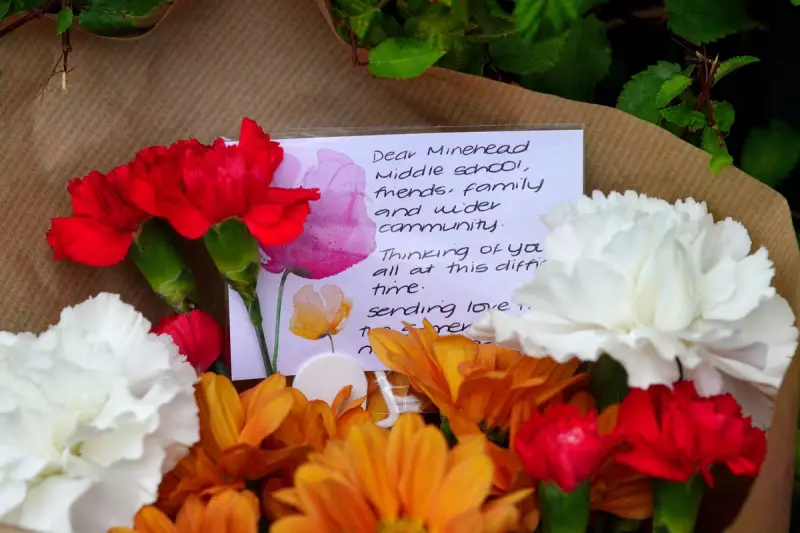 Dear Minehead
Middle school,
friends, family
and wider
community.
Thinking of you
all at this
time.
sending love